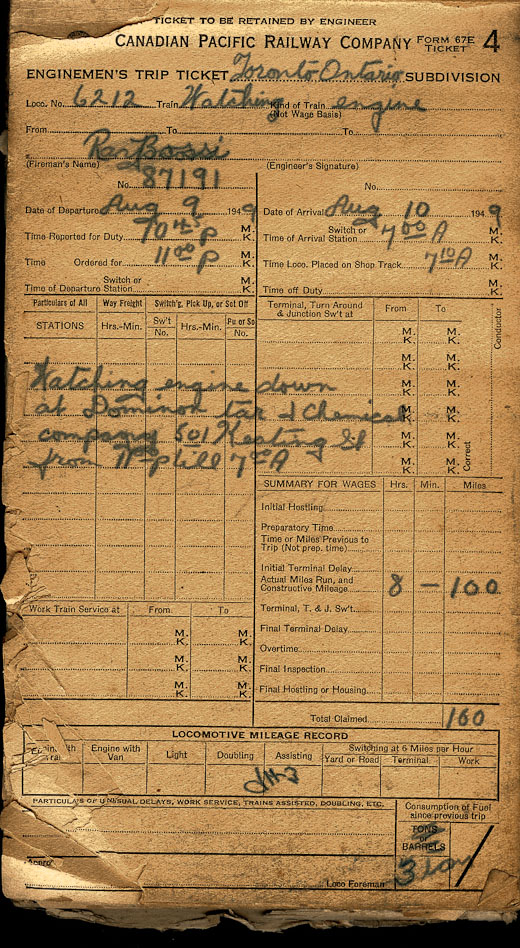 TICKET TO BE RETAINED BY ENGINEER
CANADIAN PACIFIC RAILWAY COMPANY FORM 67E TICKET 4
ENGINEMEN'S TRIP TICKET Toronto Ontario SUBDIVISION
Loco. No. 6212 Train Watching Kind of Train engine
(Not Wage Basis)
From To To
Bossi
(Fireman's Name) (Engineer's Signature)
No. 87191 No.
Date of Departure Aug 9 1949 Date of Arrival Aug 10 1949
Time Reported for Duty 10 45 P M. K. Switch or Time of Arrival Station 7 00 A M. K.
Time Ordered for 11 00 P M. K. Time Loco. Placed on Shop Track 7 10 A M. K.
Switch or
Time of Departure Station M. K. Time off Duty M. K.
Particulars of All Way Freight Switch'g, Pick Up, or Set Off Terminal, Turn Around & Junction Sw't at From To Conductor
STATIONS Hrs.-Min. Sw't No. Hrs.-Min. Pu or So No. M. K. M. K.
M. K. M. K.
M. K. M. K.
Watching engine down
at Dominion tar & Chemical M. K. M. K.
company 501 Keating St M. K. M. K.
from till 7 A M. K. M. K. Correct
SUMMARY FOR WAGES Hrs. Min. Miles
Initial Hostling
Preparatory Time
Time or Miles Previous to Trip (Not prep. time)
Initial Terminal Delay
Actual Miles Run, and Constructive Mileage 8 — 100
Work Train Service at From To Terminal, T. & J. Sw't.
M. K. M. K. Final Terminal Delay
Overtime
M. K. M. K. Final Inspection
M. K. M. K. Final Hostling or Housing
Total Claimed 100
LOCOMOTIVE MILEAGE RECORD
Engine with Train Engine with Van Light Doubling Assisting Switching at 6 Miles per Hour
Yard or Road Terminal Work
PARTICULARS OF UNUSUAL DELAYS, WORK SERVICE, TRAINS ASSISTED, DOUBLING, ETC. Consumption of Fuel since previous trip
TONS or BARRELS
3
Loco Foreman